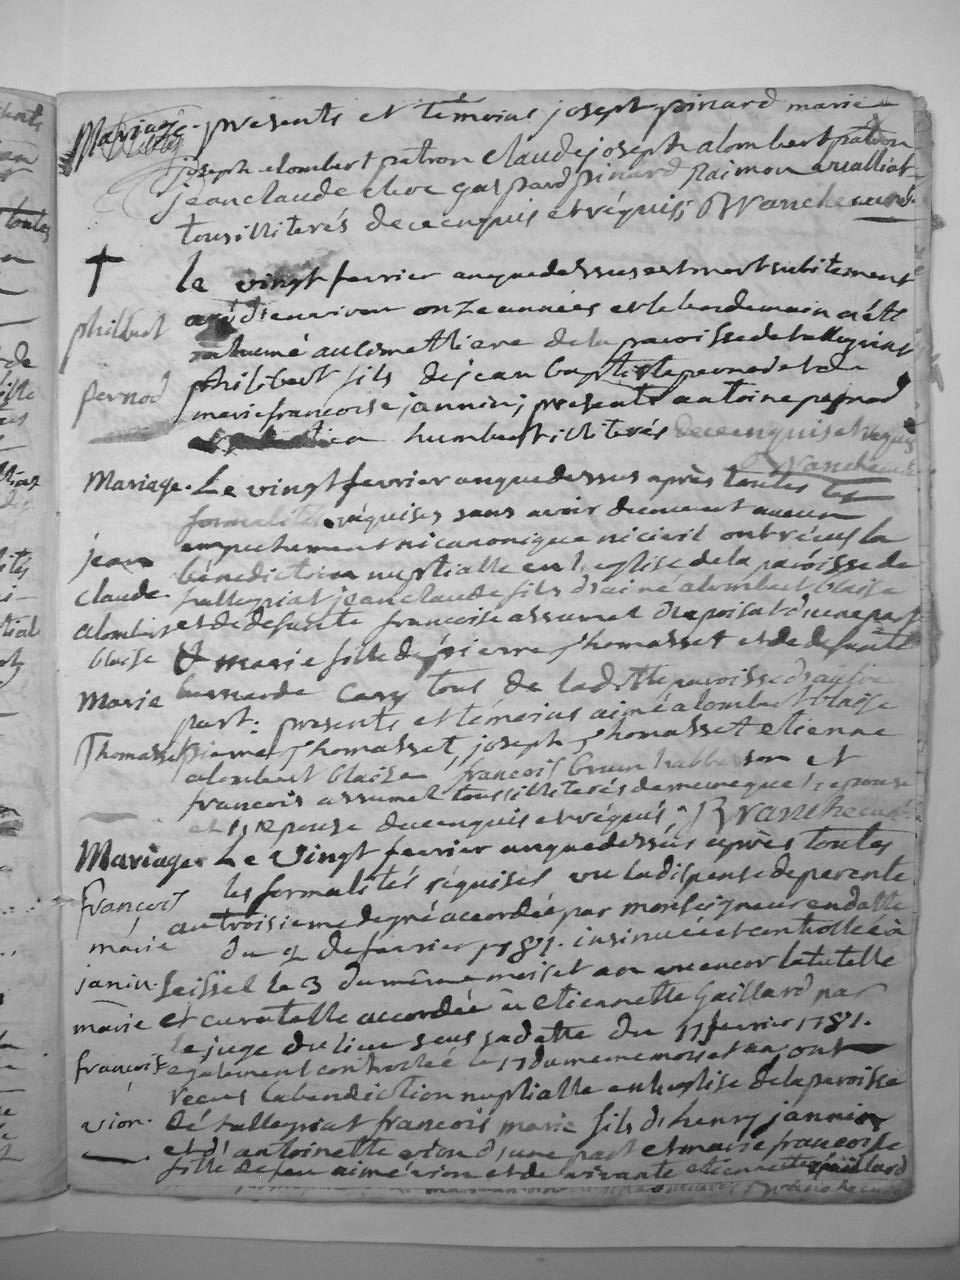 Mariage. presents et temoins joseph pinard marie
joseph alombert patron claude joseph alombert patron
jean claude gaspard pinard Raimon
tous illiterés de ce enquis et réquis; Branche curé
✝ le vingt fevrier an que dessus est mort subitement
philibert
agé d'environ onze années et le lendemain a été
inhumé au cimettiere de la paroisse de tallegniat
pernod
philibert fils de jean baptiste pernod et de
marie francoise jannin; presents antoine pernod
humbert illiterés de ce enquis et requis
Branche curé
Mariage. Le vingt fevrier an que dessus après toutes les
formalités réquises sans avoir decouvert aucun
empechement ni canonique ni civil ont reçus la
jean
bénediction nuptialle en l'eglise de la paroisse de
claude
tallegniat jean claude fils d'aimé alombert blaise
alombert
et de defunte francoise assumel d'une part
blaise
et marie fille de pierre Thomasset et de defunte
Marie
bernarde Cary tous de la ditte paroisse d'autre
part: presents et témoins aimé alombert blaise
Thomasset
pierre Thomasset, joseph Thomasset etienne
alombert blaise, francois brun et
francois assumel tous illiterés de meme que l'epouse
et l'epouse de ce enquis et réquis Branche curé
Mariage. Le Vingt fevrier an que dessus après toutes
françois
les formalités réquises vu la dispense de parenté
au troisieme degré accordée par monseigneur en datte
marie
du 2 de fevrier 1781. insinuée et controllée à
janin.
seissel le 3 du même mois et an vu encor la tutelle
marie
et curatelle accordée à etiennette Gaillard par
le juge du lieu sous sa datte du 17 fevrier 1781.
francoise
egalement controlée le 17 du meme mois et an, ont
recus la benediction nuptialle en l'eglise de la paroisse
vion.
de tallegniat francois marie fils d'henry jannin
et d'antoinette vion d'une part et marie francoise
fille de feu aimé vion et de vivante etiennette gaillard